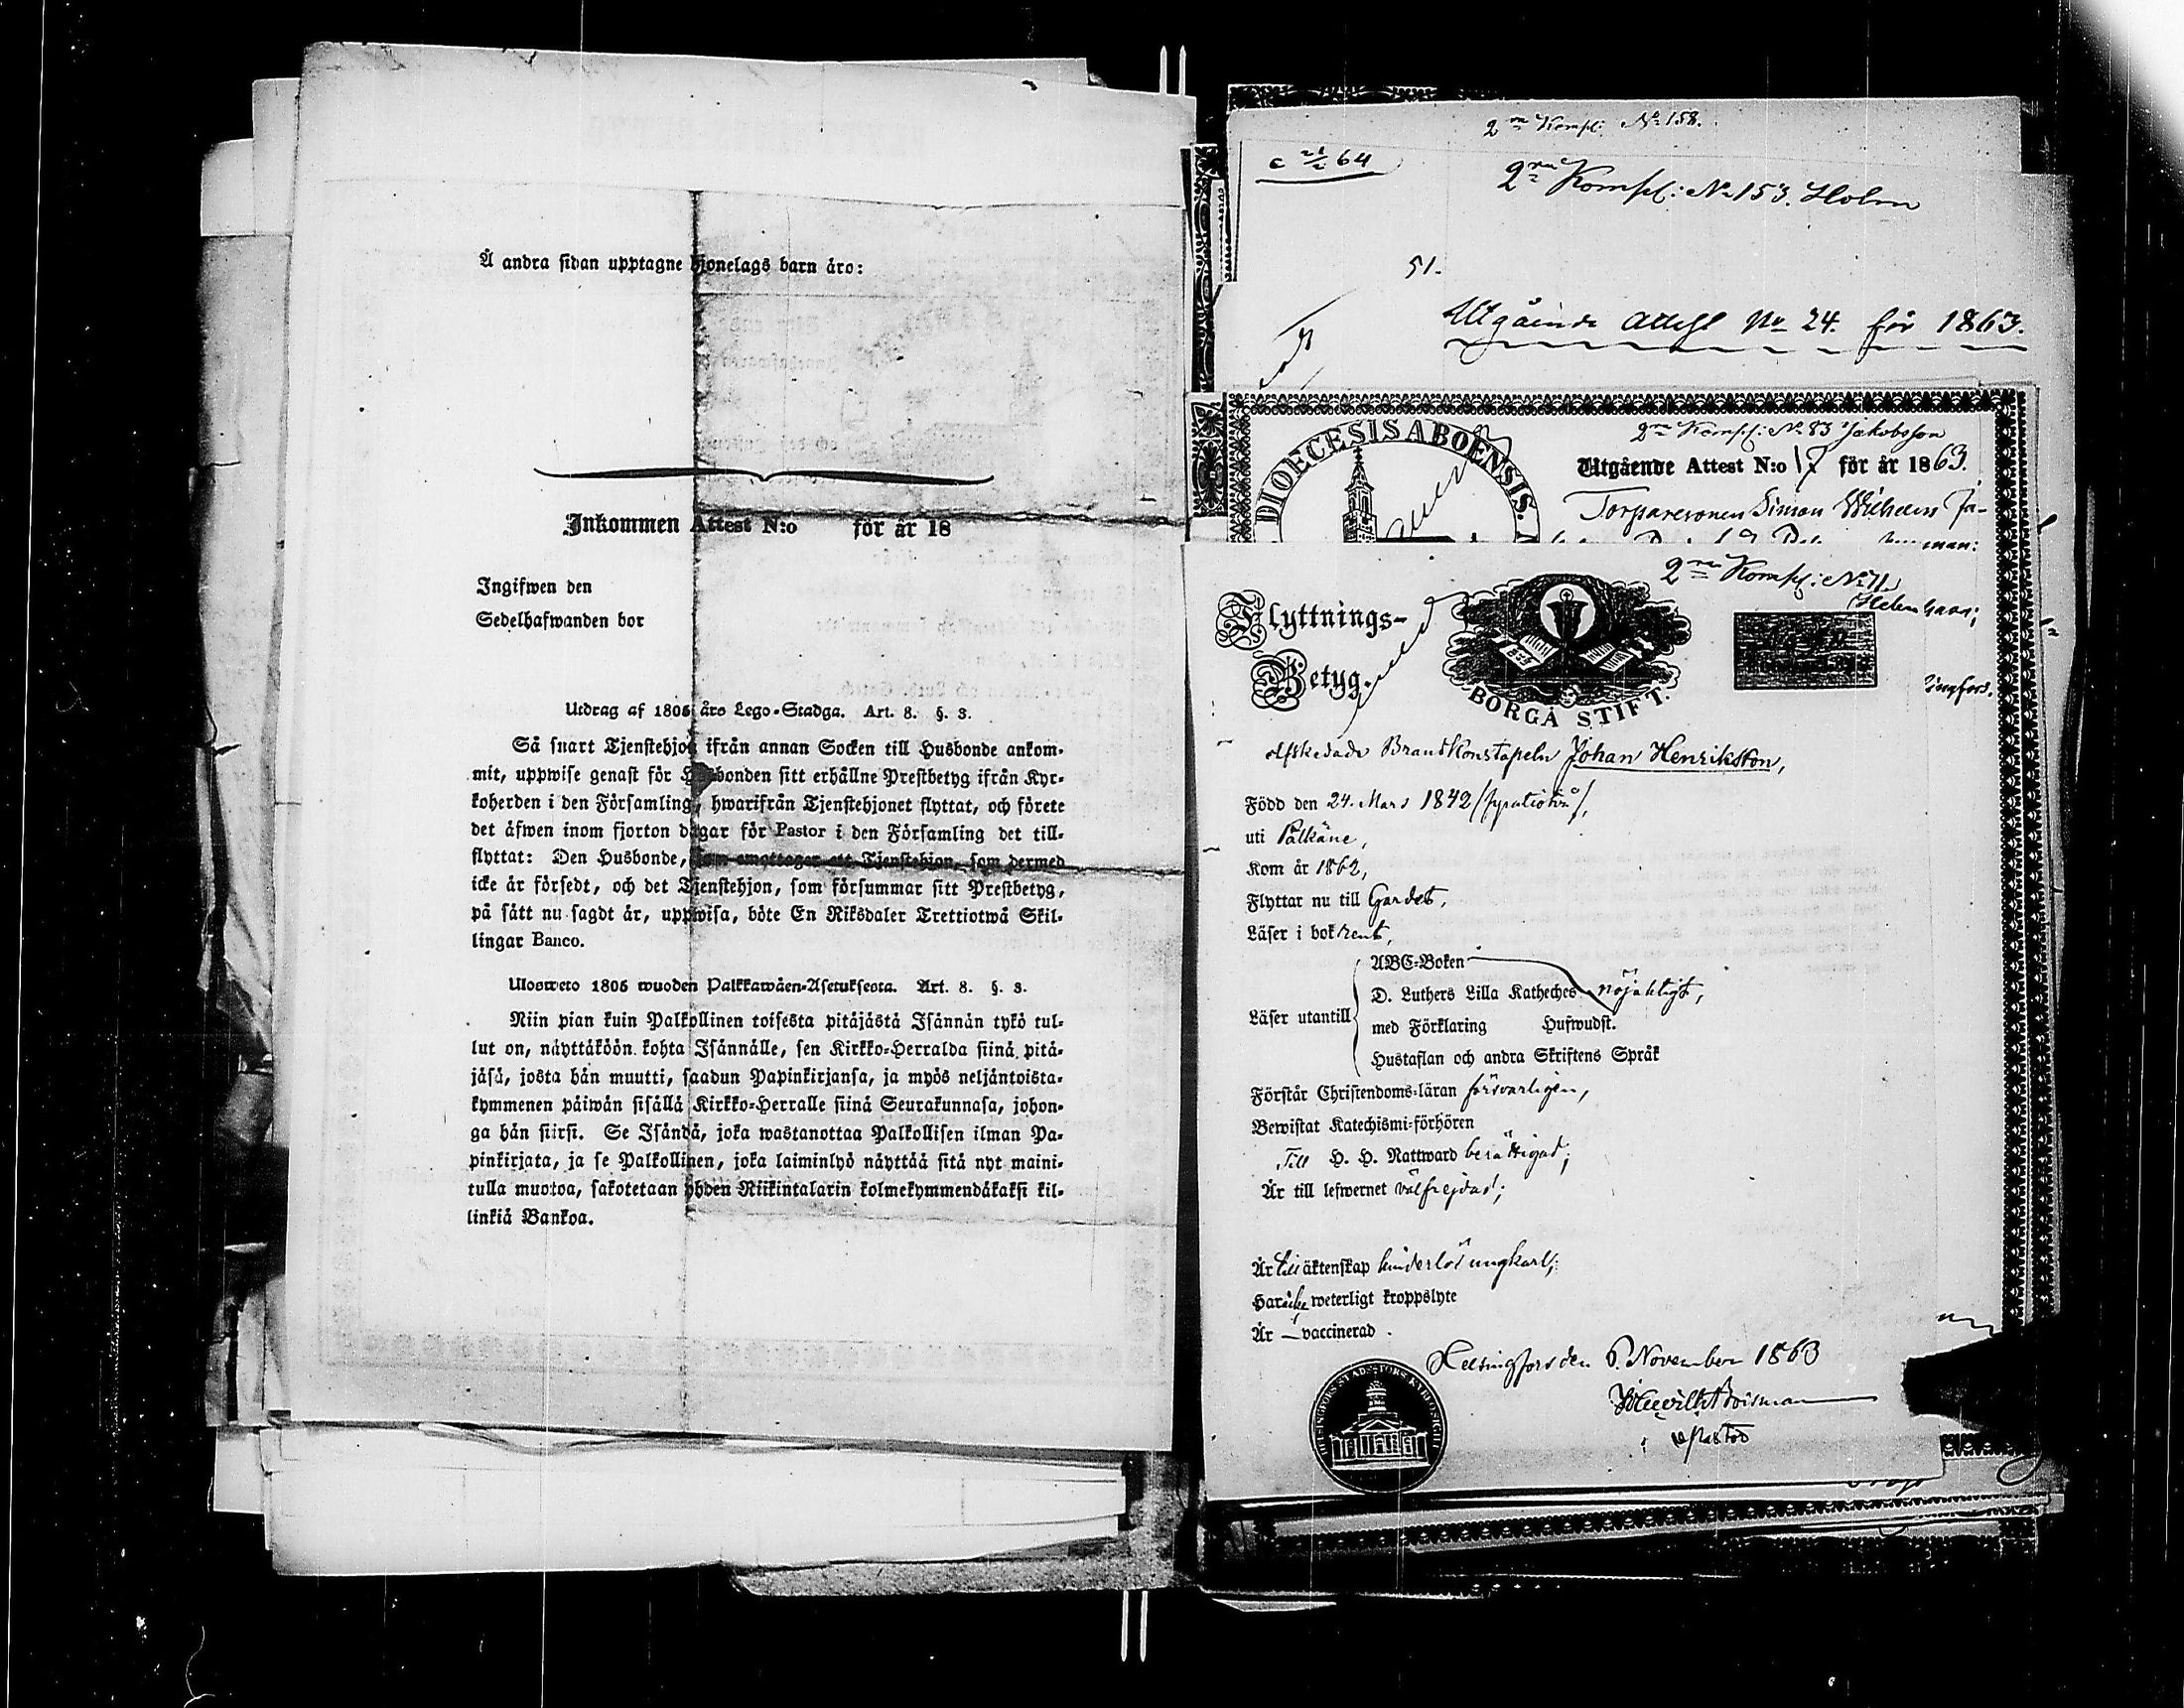 Å andra sidan upptagne hjonelags barn äro:
Inkommen Attest N:o för år 18
Ingifwen den
Sedelhafwanden bor
Utdrag af 1805 års Lego-Stadga. Art. 8. §. 3.
Så snart Tjenstehjon ifrån annan Socken till Husbonde ankom-
mit, uppwise genast för Husbonden sitt erhållne Prestbetyg ifrån Kyr-
koherden i den Församling, hwarifrån Tjenstehjonet flyttat, och förete
det äfwen inom fjorton dagar för Pastor i den Församling det till-
flyttat: Den Husbonde, som emottager ett Tjenstehjon, som dermed
icke är försedt, och det Tjenstehjon, som försummar sitt Prestbetyg,
på sätt nu sagdt är, uppwisa, böte En Riksdaler Trettiotwå Skil-
lingar Banco.
Ulosweto 1805 wuoden Palkkawäen-Asetuksesta. Art. 8. §. 3.
Niin pian kuin Palkollinen toisesta pitäjästä Isännän tykö tul-
lut on, näyttäköön kohta Isännälle, sen Kirkko-Herralda siinä pitä-
jäsä, josta hän muutti, saadun Papinkirjansa, ja myös neljäntoista-
kymmenen päiwän sisällä Kirkko-Herralle siinä Seurakunnasa, johon-
ga hän siirsi. Se Isändä, joka wastanottaa Palkollisen ilman Pa-
pinkirjata, ja se Palkollinen, joka laiminlyö näyttää sitä nyt maini-
tulla muotoa, sakotetaan yhden Riikintalarin kolmekymmendäkaksi kil-
linkiä Bankoa.
2ra Kompl: No 158.
64
2ra Kompl: No 153. Holm
51.
Utgående attest No 24 för 1863.
DIOECESIS ABOENSIS.
2ra Kompl: No 83 Jakobsson
Utgående Attest N:o 17 för år 1863.
Torparesonen Simon Wilhelm Ja-
2ra Kompl: No 11
Flyttnings-
Betyg.
BORGÅ STIFT.
Afskedade Brandkonstapeln Johan Henriksson,
Född den 24. Mars 1842 /fyratiotvå/,
uti Pälkäne,
Kom år 1862,
Flyttar nu till Gardet,
Läser i bok rent,
ABC-Boken
D. Luthers Lilla Kateches nöjaktigt,
Läser utantill
med Förklaring Hufwudst.
Hustaflan och andra Skriftens Språk
Förstår Christendoms-läran försvarligen,
Bewistat Katechismi-förhören
Till H. H. Nattward berättigad;
Är till lefwernet välfrejdad;
Är till äktenskap hinderlös ungkarl;
Har icke weterligt kroppslyte
Är vaccinerad.
Helsingfors den 6. November 1863